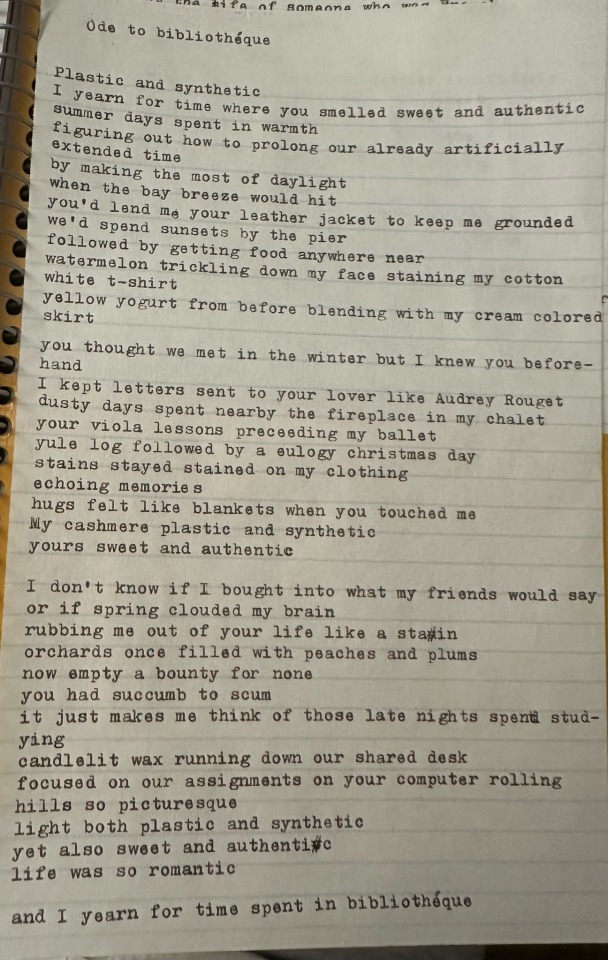 Ode to bibliothéque
Plastic and synthetic
I yearn for time where you smelled sweet and authentic
summer days spent in warmth
figuring out how to prolong our already artificially
extended time
by making the most of daylight
when the bay breeze would hit
you'd lend me your leather jacket to keep me grounded
we'd spend sunsets by the pier
followed by getting food anywhere near
watermelon trickling down my face staining my cotton
white t-shirt
yellow yogurt from before blending with my cream colored
skirt
you thought we met in the winter but I knew you before-
hand
I kept letters sent to your lover like Audrey Rouget
dusty days spent nearby the fireplace in my chalet
your viola lessons preceeding my ballet
yule log followed by a eulogy christmas day
stains stayed stained on my clothing
echoing memories
hugs felt like blankets when you touched me
My cashmere plastic and synthetic
yours sweet and authentic
I don't know if I bought into what my friends would say
or if spring clouded my brain
rubbing me out of your life like a stain
orchards once filled with peaches and plums
now empty a bounty for none
you had succumb to scum
it just makes me think of those late nights spent stud-
ying
candlelit wax running down our shared desk
focused on our assignments on your computer rolling
hills so picturesque
light both plastic and synthetic
yet also sweet and authentic
life was so romantic
and I yearn for time spent in bibliothéque